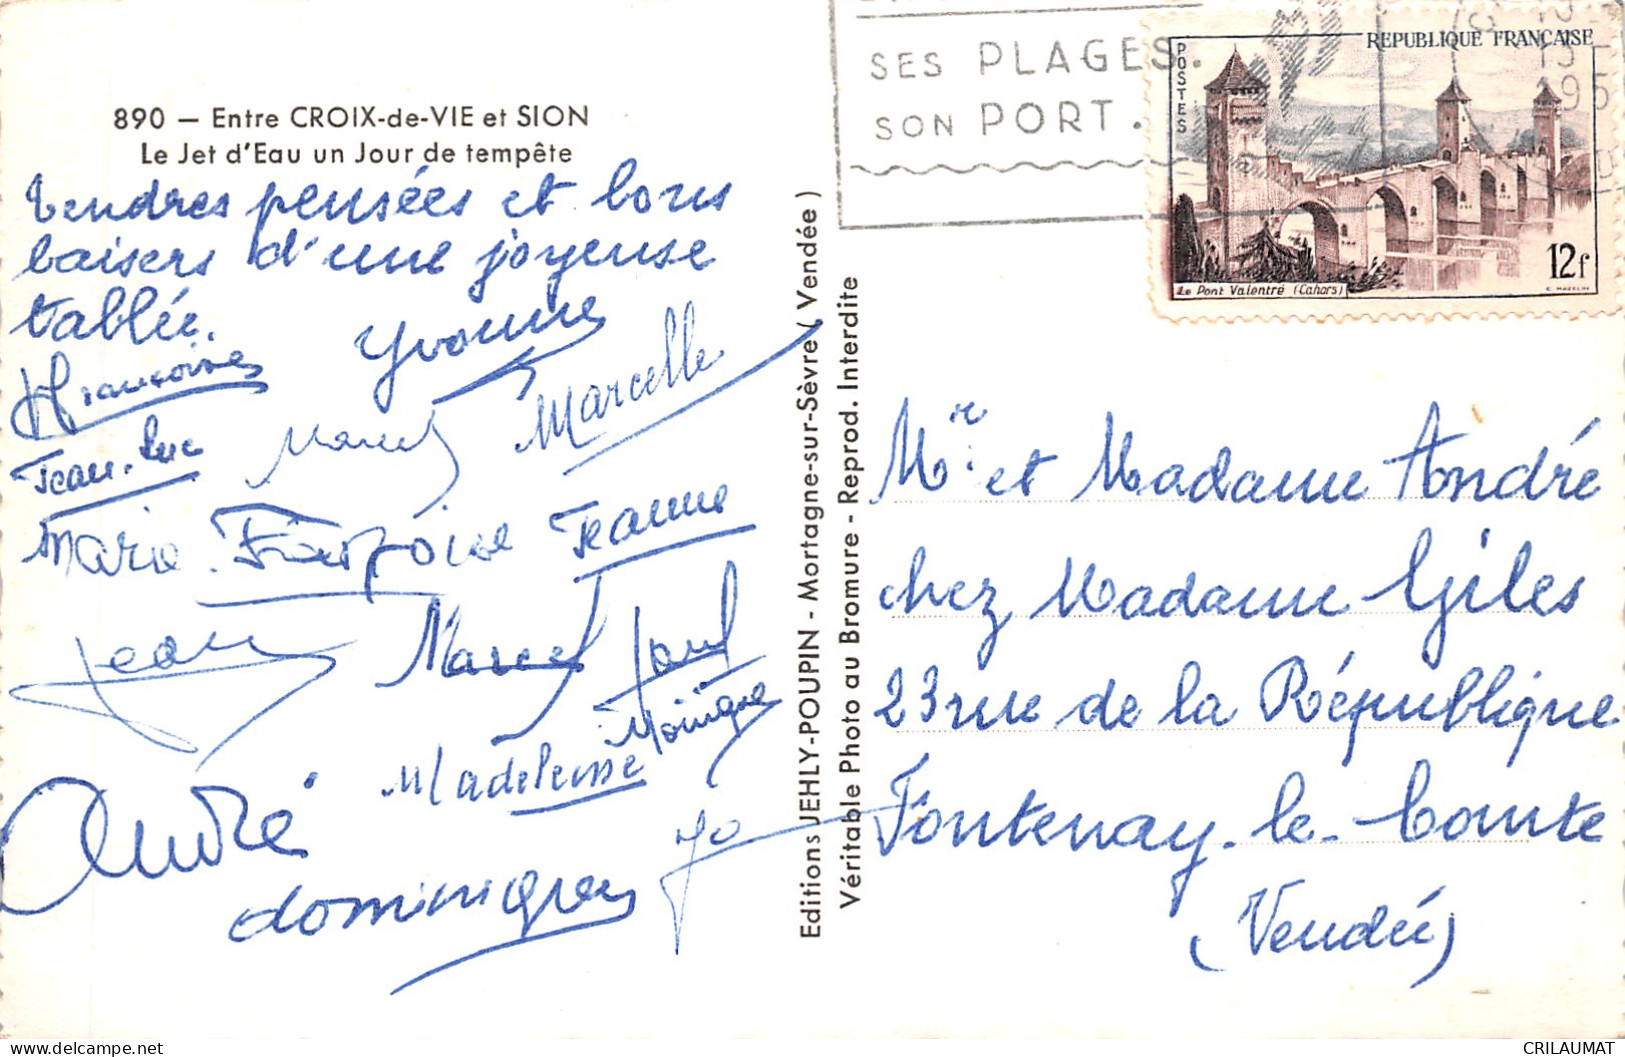 890 — Entre CROIX-de-VIE et SION
Le Jet d'Eau un Jour de tempête
Tendres pensées et bons
baisers d'une joyeuse
tablée.
Françoise
Yvonne
Marcelle
Marcel
Jean-Luc
Marie-Françoise
Jeanne
Jean
Marcel
Paul
Monique
Madeleine
André
Jo
dominique
Editions JEHLY-POUPIN - Mortagne-sur-Sèvre ( Vendée )
Véritable Photo au Bromure - Reprod. Interdite
SES PLAGES.
SON PORT.
POSTES
REPUBLIQUE FRANÇAISE
12f
Le Pont Valentré (Cahors)
C. MAZELIN
Mr. et Madame André
chez Madame Giles
23 rue de la République
Fontenay-le-Comte
(Vendée)
CRILAUMAT